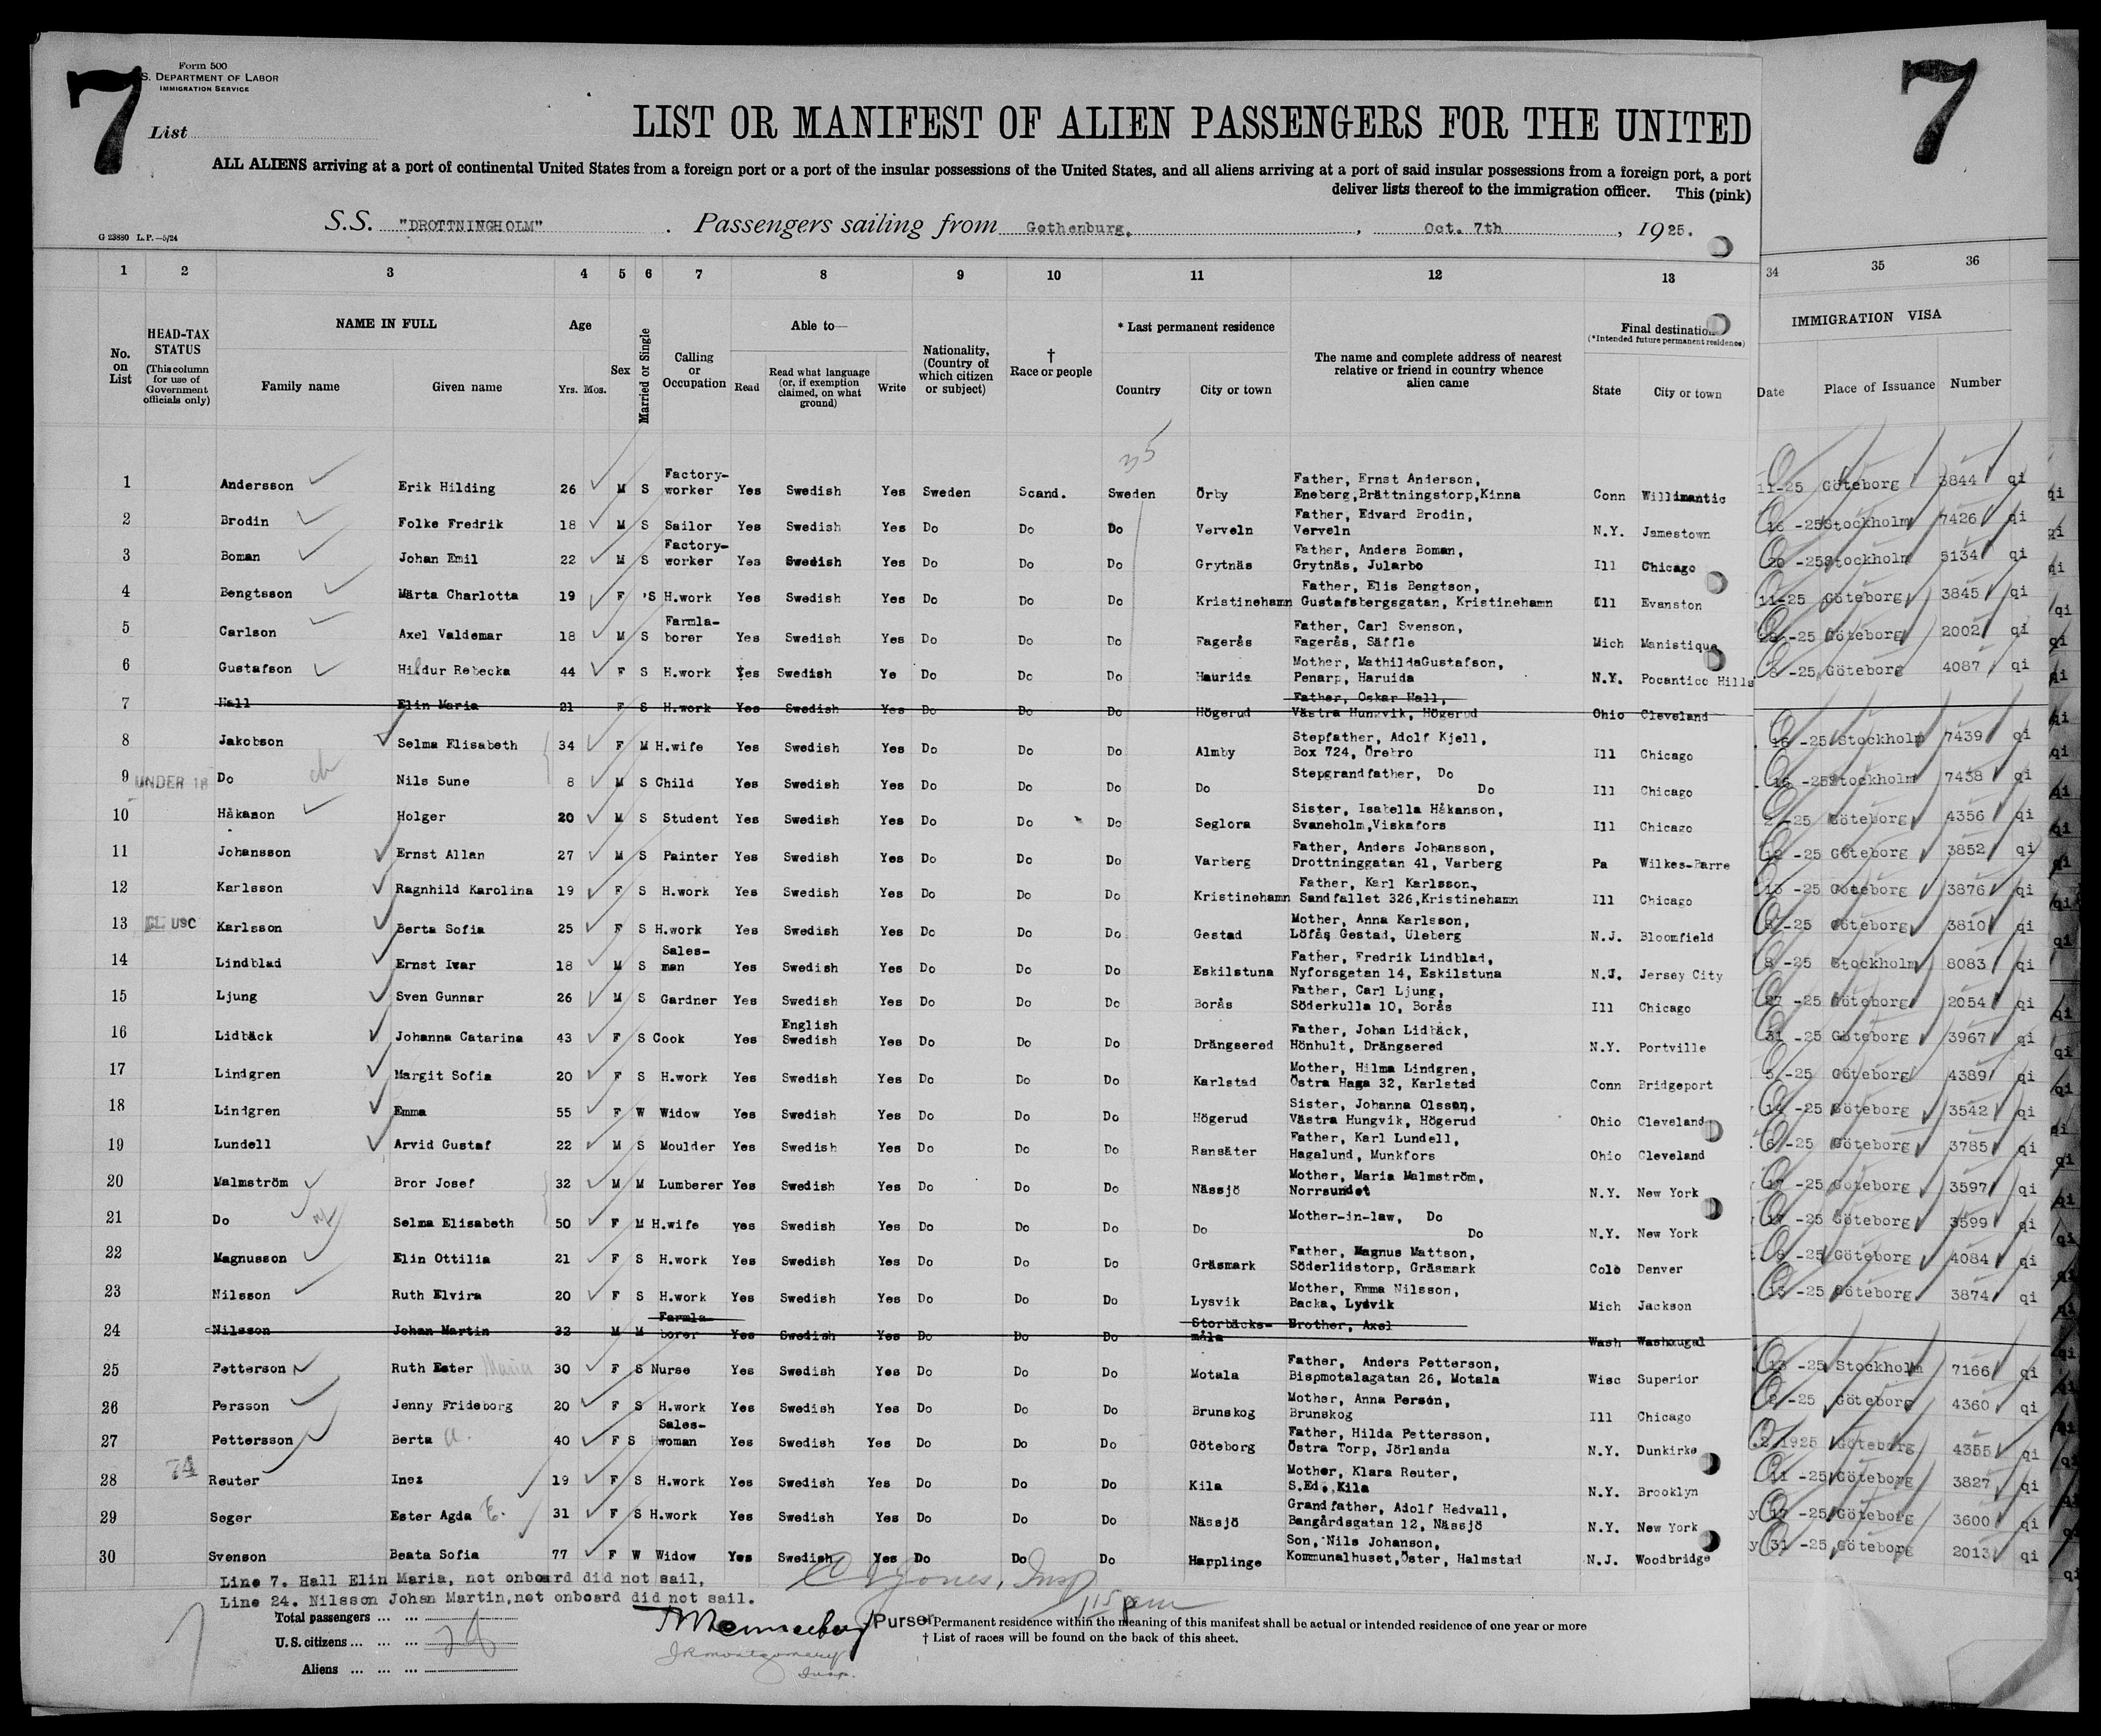 7
Form 500
S. DEPARTMENT OF LABOR
IMMIGRATION SERVICE
List
LIST OR MANIFEST OF ALIEN PASSENGERS FOR THE UNITED
7
ALL ALIENS arriving at a port of continental United States from a foreign port or a port of the insular possessions of the United States, and all aliens arriving at a port of said insular possessions from a foreign port, a port
deliver lists thereof to the immigration officer. This (pink)
S.S. "DROTTNINGHOLM". Passengers sailing from Gothenburg, , Oct. 7th , 1925.
G 23880 L. P.—5/24
1 2 3 4 5 6 7 8 9 10 11 12 13 34 35 36
No. on List
HEAD-TAX STATUS (This column for use of Government officials only)
NAME IN FULL Family name Given name
Age Yrs. Mos.
Sex
Married or Single
Calling or Occupation
Able to— Read Read what language (or, if exemption claimed, on what ground) Write
Nationality, (Country of which citizen or subject)
† Race or people
* Last permanent residence Country City or town
The name and complete address of nearest relative or friend in country whence alien came
Final destination (*Intended future permanent residence) State City or town
IMMIGRATION VISA Date Place of Issuance Number
1 Andersson Erik Hilding 26 M S Factory-worker Yes Swedish Yes Sweden Scand. Sweden Örby Father, Ernst Anderson, Eneberg,Brättningstorp,Kinna Conn Willimantic 11-25 Göteborg 3844 qi
2 Brodin Folke Fredrik 18 M S Sailor Yes Swedish Yes Do Do Do Verveln Father, Edvard Brodin, Verveln N.Y. Jamestown 16 -25 Stockholm 7426 qi
3 Boman Johan Emil 22 M S Factory-worker Yes Swedish Yes Do Do Do Grytnäs Father, Anders Boman, Grytnäs, Jularbo Ill Chicago 20 -25 Stockholm 5134 qi
4 Bengtsson Märta Charlotta 19 F S H.work Yes Swedish Yes Do Do Do Kristinehamn Father, Elis Bengtson, Gustafsbergsgatan, Kristinehamn Ill Evanston 11-25 Göteborg 3845 qi
5 Carlson Axel Valdemar 18 M S Farmla-borer Yes Swedish Yes Do Do Do Fagerås Father, Carl Svenson, Fagerås, Säffle Mich Manistique -25 Göteborg 2002 qi
6 Gustafson Hildur Rebecka 44 F S H.work Yes Swedish Ye Do Do Do Haurida Mother, MathildaGustafson, Penarp, Haruida N.Y. Pocantico Hills -25 Göteborg 4087 qi
7 Hall Elin Maria 21 F S H.work Yes Swedish Yes Do Do Do Högerud Father, Oskar Hall, Västra Hungvik, Högerud Ohio Cleveland
8 Jakobson Selma Elisabeth 34 F M H.wife Yes Swedish Yes Do Do Do Almby Stepfather, Adolf Kjell, Box 724, Örebro Ill Chicago 16 -25 Stockholm 7439 qi
9 UNDER 18 Do Nils Sune 8 M S Child Yes Swedish Yes Do Do Do Do Stepgrandfather, Do Do Ill Chicago 16 -25 Stockholm 7438 qi
10 Håkanson Holger 20 M S Student Yes Swedish Yes Do Do Do Seglora Sister, Isabella Håkanson, Svaneholm,Viskafors Ill Chicago 2 -25 Göteborg 4356 qi
11 Johansson Ernst Allan 27 M S Painter Yes Swedish Yes Do Do Do Varberg Father, Anders Johansson, Drottninggatan 41, Varberg Pa Wilkes-Barre 12 -25 Göteborg 3852 qi
12 Karlsson Ragnhild Karolina 19 F S H.work Yes Swedish Yes Do Do Do Kristinehamn Father, Karl Karlsson, Sandfallet 326,Kristinehamn Ill Chicago 13 -25 Göteborg 3876 qi
13 USC Karlsson Berta Sofia 25 F S H.work Yes Swedish Yes Do Do Do Gestad Mother, Anna Karlsson, Löfås Gestad, Uleberg N.J. Bloomfield -25 Göteborg 3810 qi
14 Lindblad Ernst Ivar 18 M S Sales-man Yes Swedish Yes Do Do Do Eskilstuna Father, Fredrik Lindblad, Nyforsgatan 14, Eskilstuna N.J. Jersey City 8 -25 Stockholm 8083 qi
15 Ljung Sven Gunnar 26 M S Gardner Yes Swedish Yes Do Do Do Borås Father, Carl Ljung, Söderkulla 10, Borås Ill Chicago 27 -25 Göteborg 2054 qi
16 Lidbäck Johanna Catarina 43 F S Cook Yes English Swedish Yes Do Do Do Drängsered Father, Johan Lidbäck, Hönhult, Drängsered N.Y. Portville 31 -25 Göteborg 3967 qi
17 Lindgren Margit Sofia 20 F S H.work Yes Swedish Yes Do Do Do Karlstad Mother, Hilma Lindgren, Östra Haga 32, Karlstad Conn Bridgeport 5 -25 Göteborg 4389 qi
18 Lindgren Emma 55 F W Widow Yes Swedish Yes Do Do Do Högerud Sister, Johanna Olsson, Västra Hungvik, Högerud Ohio Cleveland 14 -25 Göteborg 3542 qi
19 Lundell Arvid Gustaf 22 M S Moulder Yes Swedish Yes Do Do Do Ransäter Father, Karl Lundell, Hagalund, Munkfors Ohio Cleveland 6 -25 Göteborg 3785 qi
20 Malmström Bror Josef 32 M M Lumberer Yes Swedish Yes Do Do Do Nässjö Mother, Maria Malmström, Norrsundet N.Y. New York 17 -25 Göteborg 3597 qi
21 Do Selma Elisabeth 50 F M H.wife yes Swedish Yes Do Do Do Do Mother-in-law, Do Do N.Y. New York 17 -25 Göteborg 3599 qi
22 Magnusson Elin Ottilia 21 F S H.work Yes Swedish Yes Do Do Do Gräsmark Father, Magnus Mattson, Söderlidstorp, Gräsmark Colo Denver 8 -25 Göteborg 4084 qi
23 Nilsson Ruth Elvira 20 F S H.work Yes Swedish Yes Do Do Do Lysvik Mother, Emma Nilsson, Backa, Lysvik Mich Jackson 13 -25 Göteborg 3874 qi
24 Nilsson Johan Martin 32 M M Farmla-borer Yes Swedish Yes Do Do Do Storbäcks-måla Brother, Axel Wash Washougal
25 Petterson Ruth Ester Maria 30 F S Nurse Yes Swedish Yes Do Do Do Motala Father, Anders Petterson, Bispmotalagatan 26, Motala Wisc Superior 13 -25 Stockholm 7166 qi
26 Persson Jenny Frideborg 20 F S H.work Yes Swedish Yes Do Do Do Brunskog Mother, Anna Person, Brunskog Ill Chicago 2 -25 Göteborg 4360 qi
27 Pettersson Berta a. 40 F S Sales-woman Yes Swedish Yes Do Do Do Göteborg Father, Hilda Pettersson, Östra Torp, Jörlanda N.Y. Dunkirke 2,1925 Göteborg 4355 qi
28 74 Reuter Inez 19 F S H.work Yes Swedish Yes Do Do Do Kila Mother, Klara Reuter, S.Ed., Kila N.Y. Brooklyn 11 -25 Göteborg 3827 qi
29 Seger Ester Agda E. 31 F S H.work Yes Swedish Yes Do Do Do Nässjö Grandfather, Adolf Hedvall, Bangårdsgatan 12, Nässjö N.Y. New York y 17 -25 Göteborg 3600 qi
30 Svenson Beata Sofia 77 F W Widow Yes Swedish Yes Do Do Do Harplinge Son, Nils Johanson, Kommunalhuset,Öster, Halmstad N.J. Woodbridge y 31 -25 Göteborg 2013 qi
Line 7. Hall Elin Maria, not onboard did not sail,
Line 24. Nilsson Johan Martin,not onboard did not sail.
C Jones, Insp
115 pm
Total passengers ... ...
U. S. citizens ... ... ...
Aliens ... ... ...
28
Purser
J R Montgomery
Insp.
* Permanent residence within the meaning of this manifest shall be actual or intended residence of one year or more
† List of races will be found on the back of this sheet.